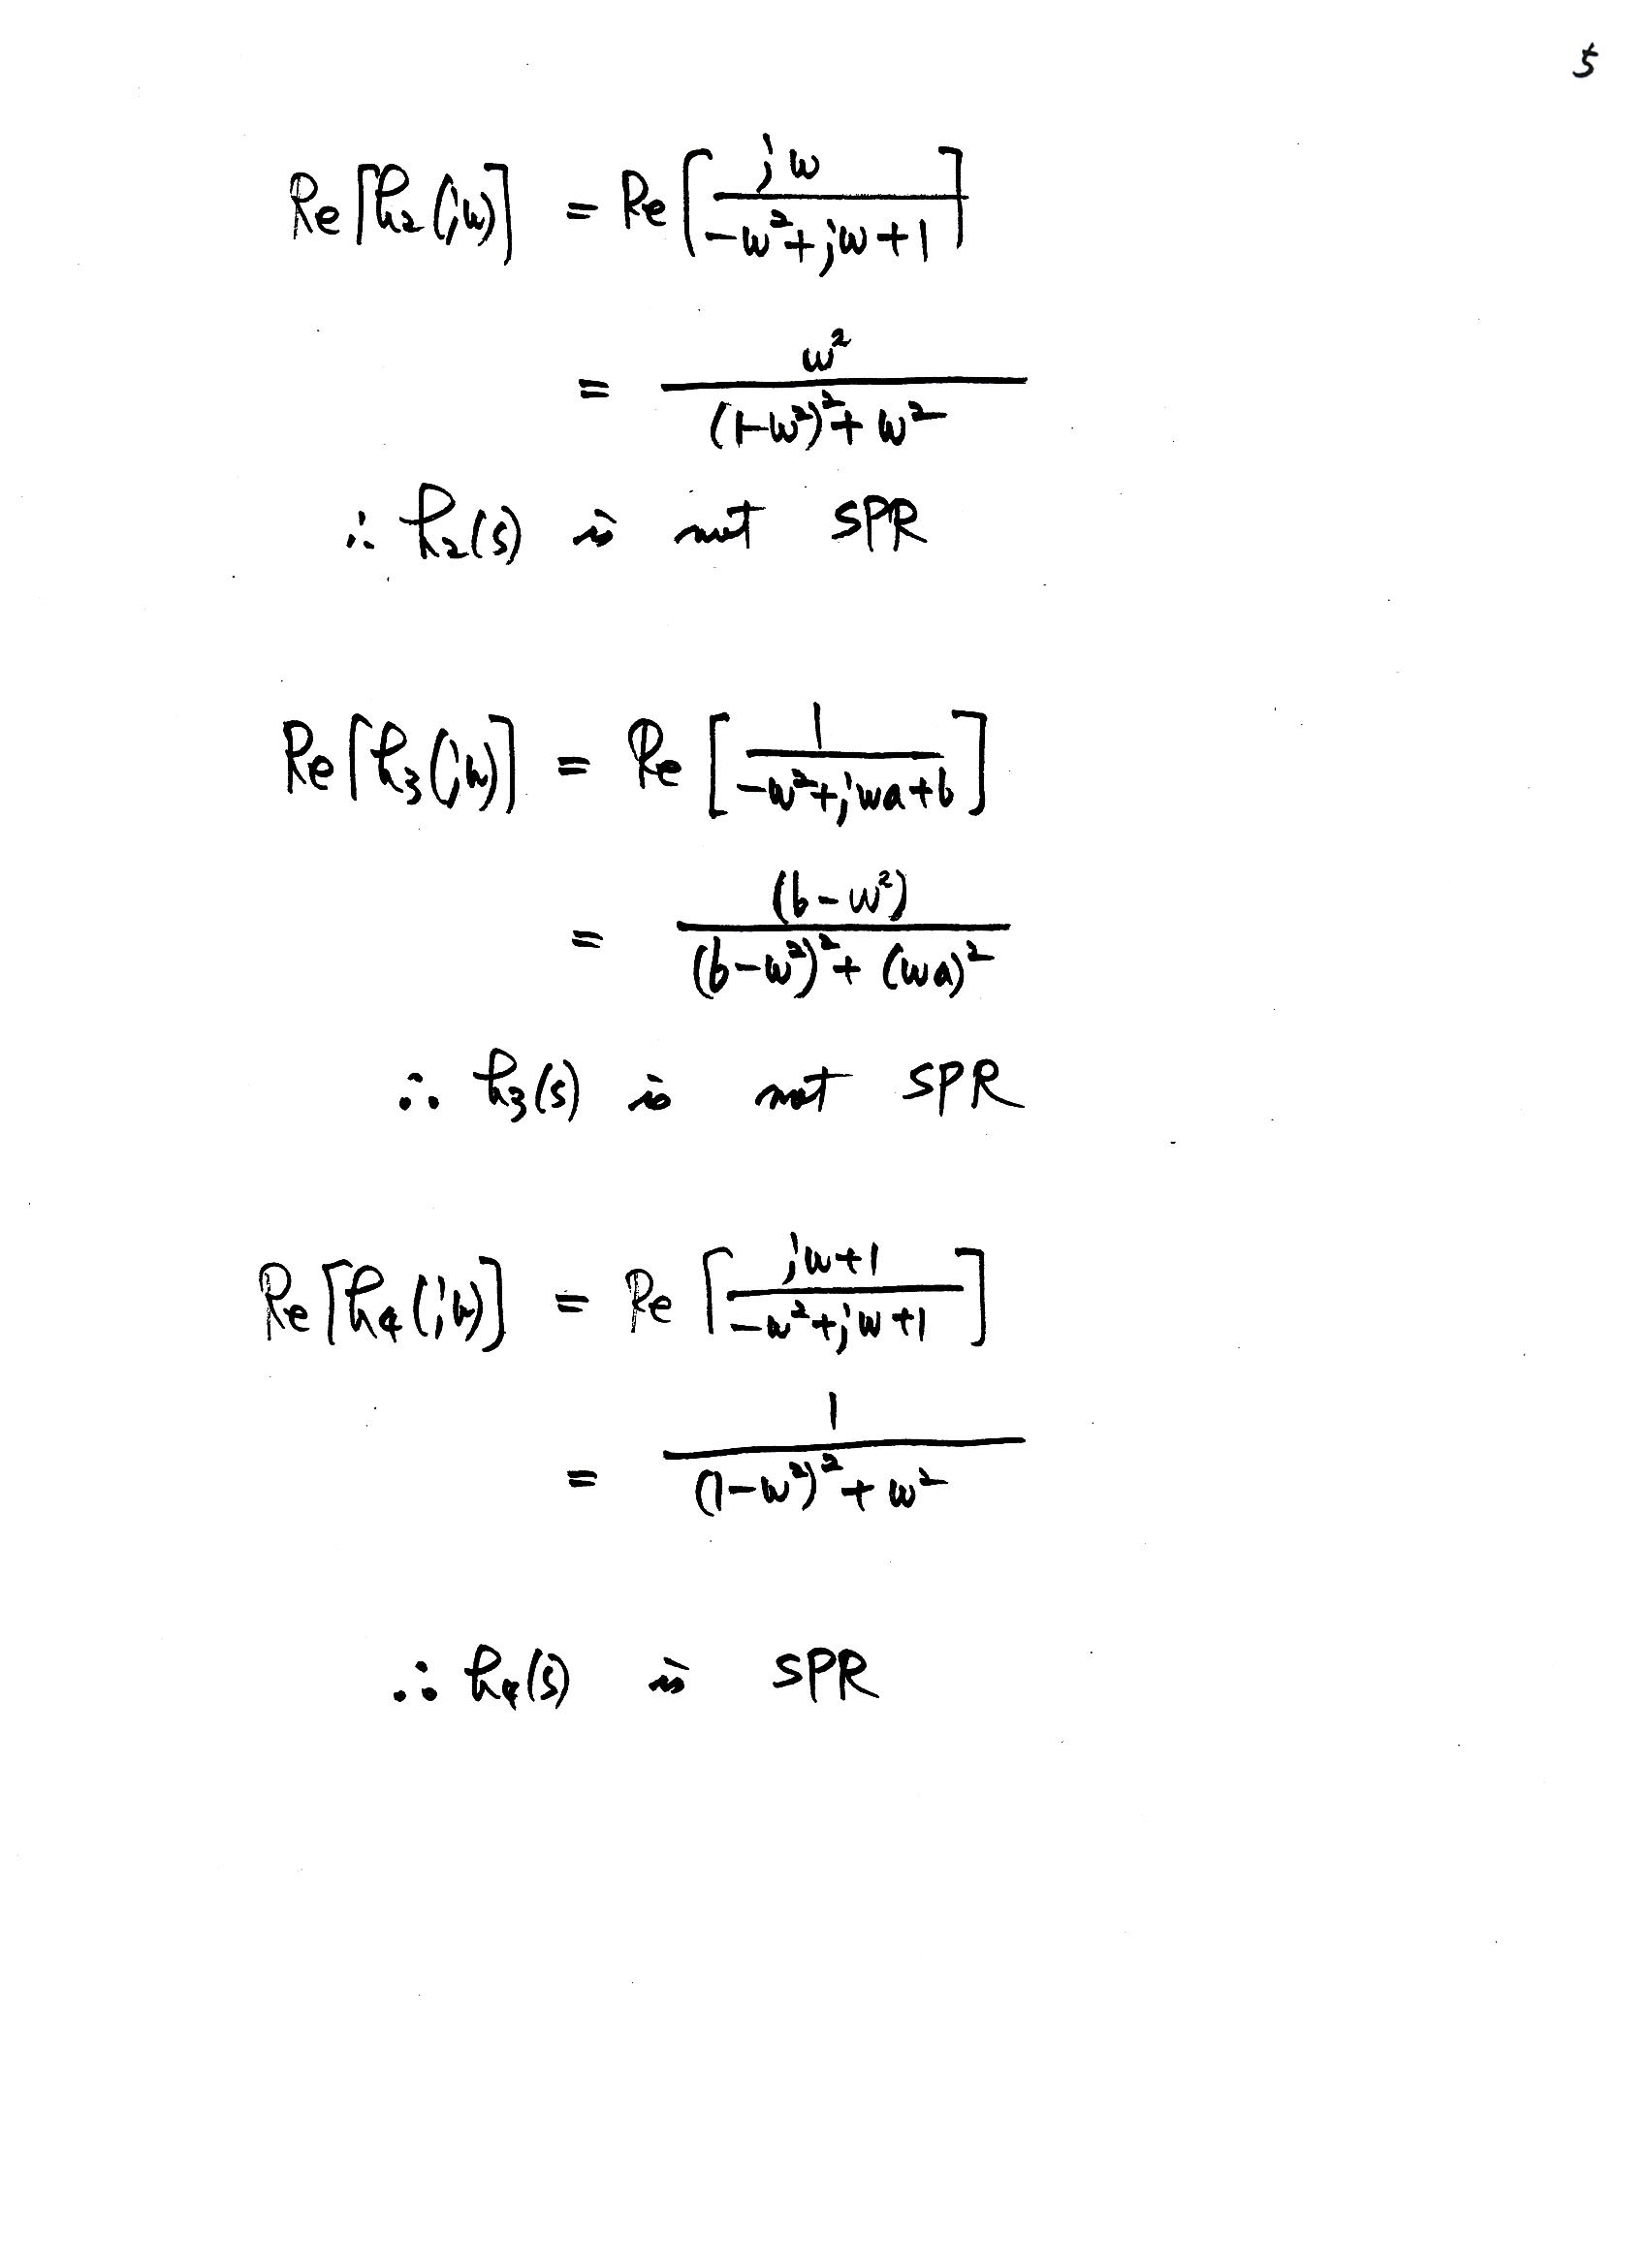 5
Re[h₂(jw)] = Re[jw / (-w²+jw+1)]
= w² / ((1-w²)²+w²)
∴ h₂(s) is not SPR
Re[h₃(jw)] = Re[1 / (-w²+jwa+b)]
= (b-w²) / ((b-w²)²+(wa)²)
∴ h₃(s) is not SPR
Re[h₄(jw)] = Re[(jw+1) / (-w²+jw+1)]
= 1 / ((1-w²)²+w²)
∴ h₄(s) is SPR